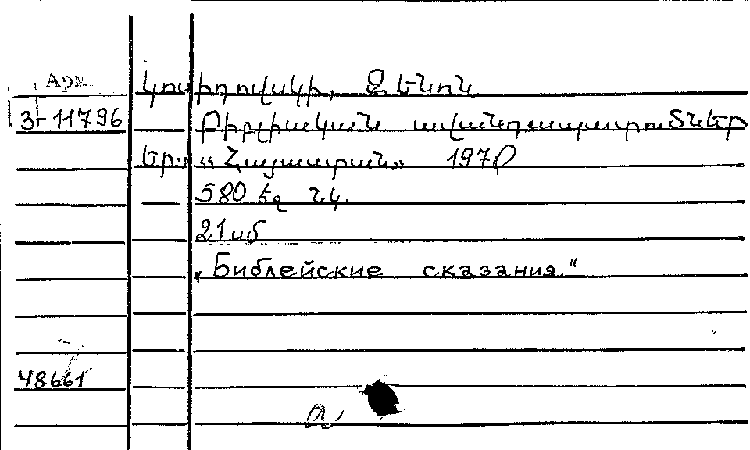 Арм
Կոսիդովսկի, Զենոն
3-11796
Բիբլիական ավանդապատումներ
Եր. «Հայաստան» 1970
580 էջ նկ.
21սմ
„Библейские сказания"
48661